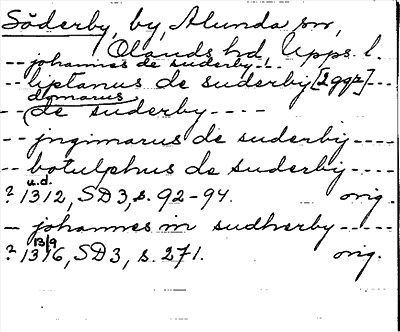 Söderby, by, Alunda sn,
Olands hd, Upps. l.
-- johannes de suderby --
-- liptanus de suderby [2 ggr] ---
domarus
-- de suderby ----
-- jngimarus de suderby ----
-- botulphus de suderby ----
u.d.
? 1312, SD 3, s. 92-94. orig.
-- johannes in sudherby ----
13/9
? 1316, SD 3, s. 271. orig.